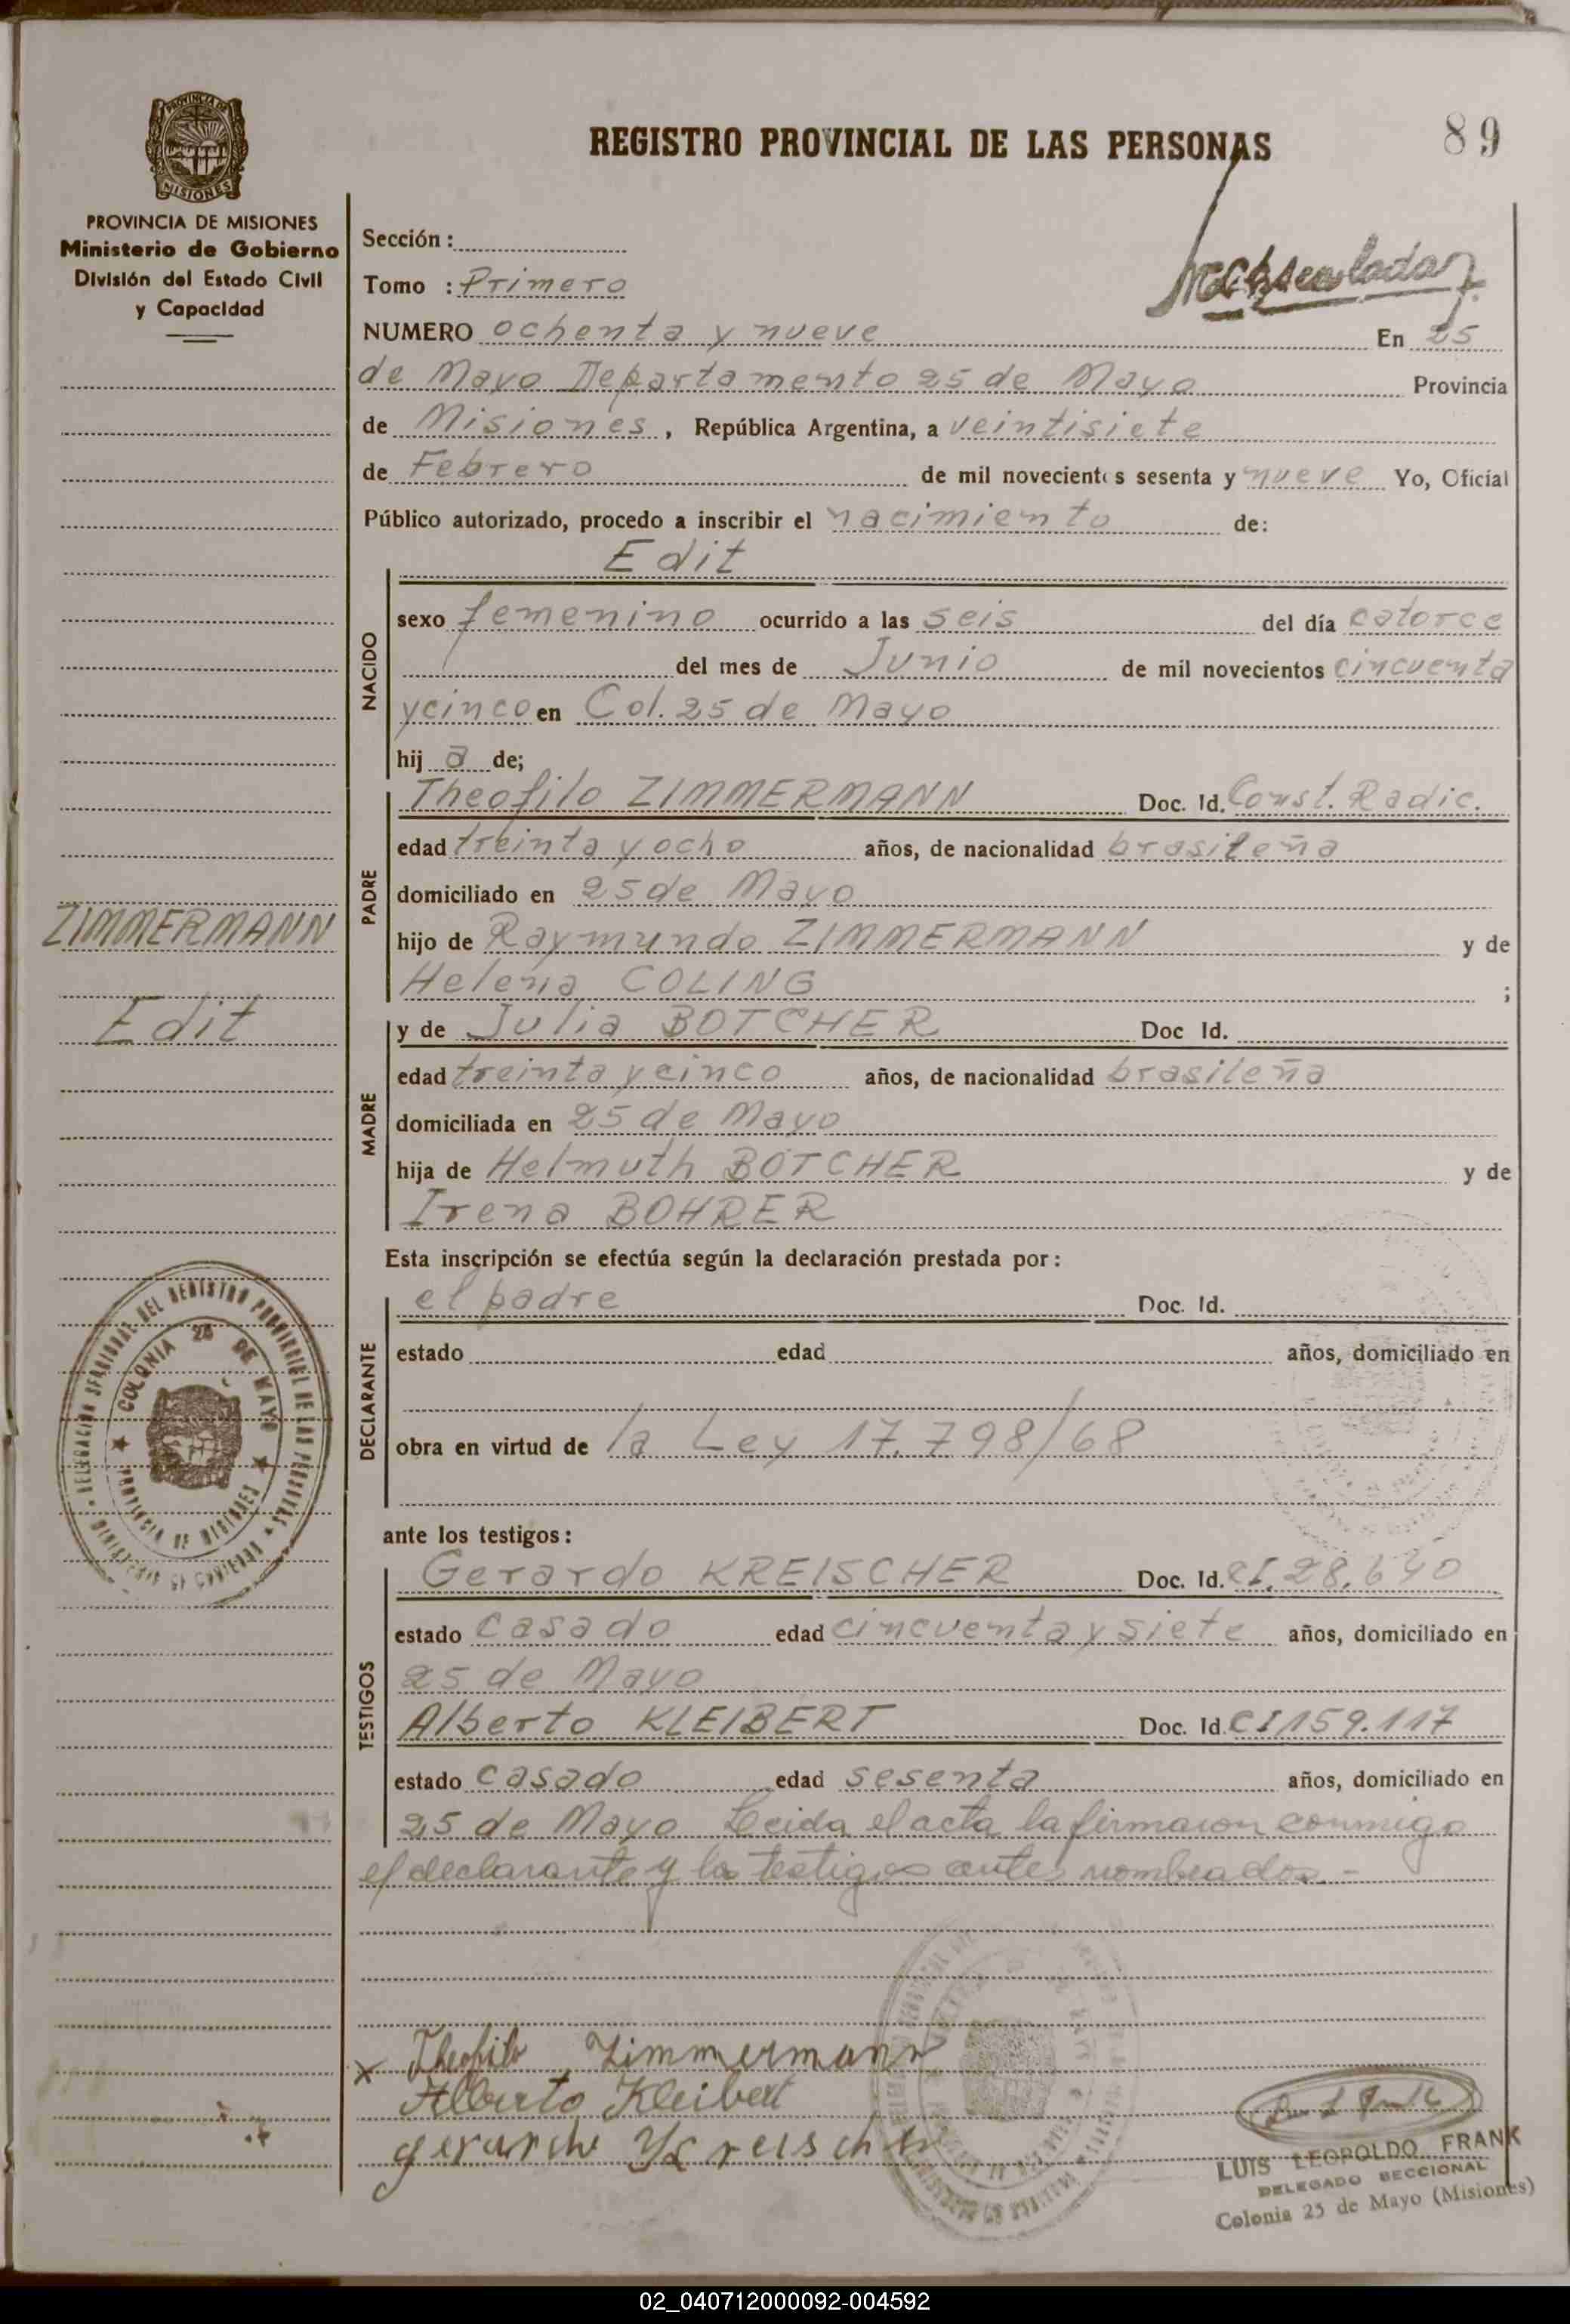 89
REGISTRO PROVINCIAL DE LAS PERSONAS
PROVINCIA DE MISIONES
PROVINCIA DE MISIONES
Ministerio de Gobierno
División del Estado Civil
y Capacidad
Sección :
Tomo : Primero
NUMERO ochenta y nueve En 25
de Mayo Departamento 25 de Mayo Provincia
de Misiones , República Argentina, a veintisiete
de Febrero de mil novecientos sesenta y nueve Yo, Oficial
Público autorizado, procedo a inscribir el nacimiento de:
Edit
NACIDO
sexo femenino ocurrido a las seis del día catorce
del mes de Junio de mil novecientos cincuenta
y cinco en Col. 25 de Mayo
hij a de;
PADRE
Theofilo ZIMMERMANN Doc. Id. Const. Radic.
edad treinta y ocho años, de nacionalidad brasileña
domiciliado en 25 de Mayo
ZIMMERMANN
hijo de Raymundo ZIMMERMANN y de
Helena COLING ;
Edit
MADRE
y de Julia BOTCHER Doc Id.
edad treinta y cinco años, de nacionalidad brasileña
domiciliada en 25 de Mayo
hija de Helmuth BOTCHER y de
Irena BOHRER
Esta inscripción se efectúa según la declaración prestada por:
DECLARANTE
el padre Doc. Id.
estado edad años, domiciliado en
obra en virtud de la Ley 17.798/68
DELEGACION SECCIONAL DEL REGISTRO PROVINCIAL DE LAS PERSONAS
COLONIA 25 DE MAYO
PROVINCIA DE MISIONES
ante los testigos:
TESTIGOS
Gerardo KREISCHER Doc. Id. CI. 28.640
estado casado edad cincuenta y siete años, domiciliado en
25 de Mayo
Alberto KLEIBERT Doc. Id. CI 159.117
estado casado edad sesenta años, domiciliado en
25 de Mayo Leida el acta la firmaron conmigo
el declarante y los testigos antes nombrados.-
x Theofilo Zimmermann
Alberto Kleibert
gerardo Kreischer
LUIS LEOPOLDO FRANK
DELEGADO SECCIONAL
Colonia 25 de Mayo (Misiones)
02_040712000092-004592